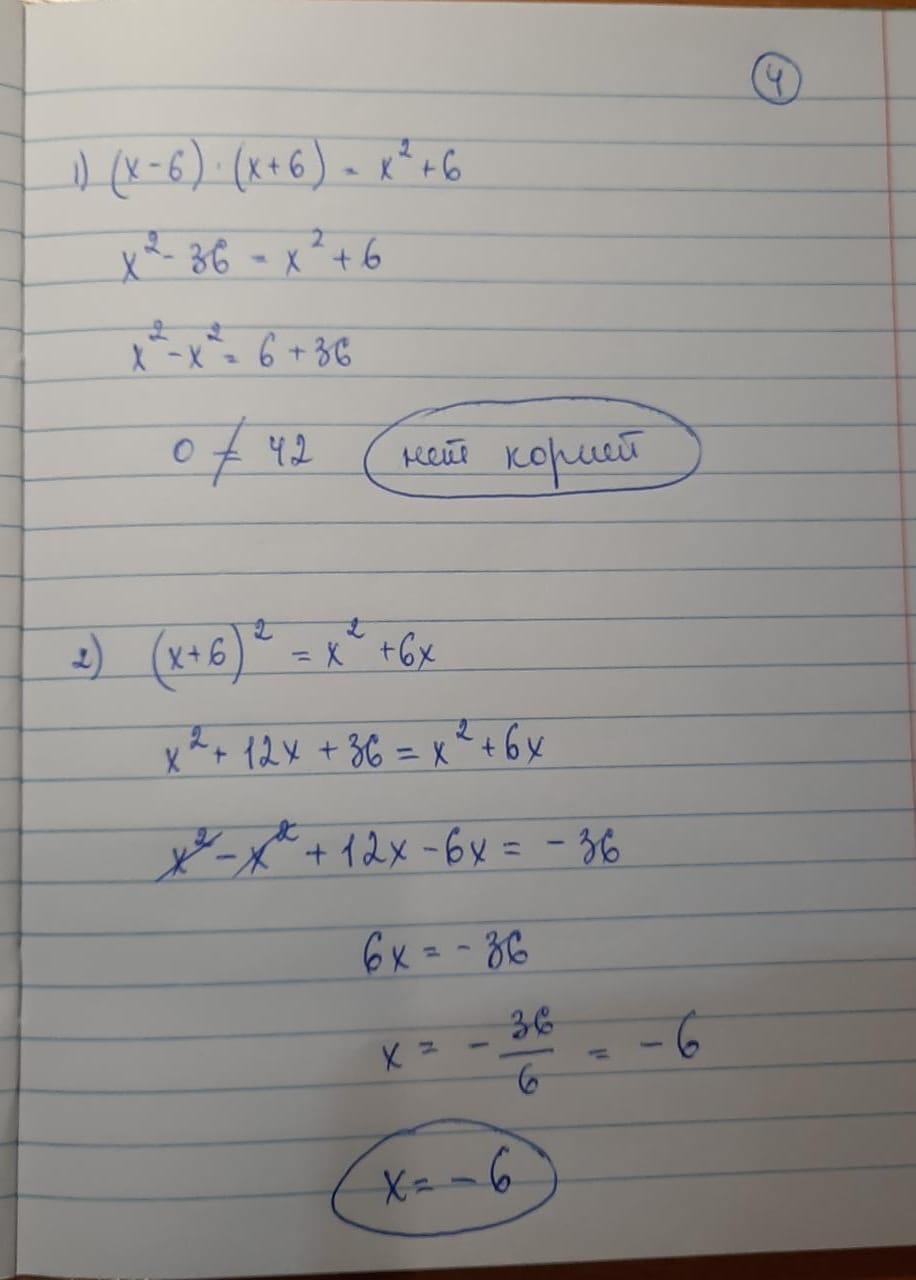 4
1) (x-6)·(x+6) = x² + 6
x² - 36 = x² + 6
x² - x² = 6 + 36
0 ≠ 42 нет корней
2) (x+6)² = x² + 6x
x² + 12x + 36 = x² + 6x
x² - x² + 12x - 6x = - 36
6x = - 36
x = - 36/6 = - 6
x = - 6